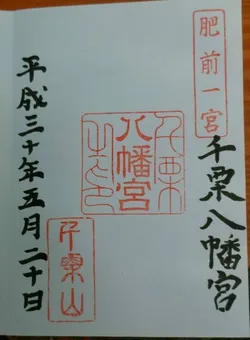 肥前一宮
千栗八幡宮
千栗
八幡宮
千栗山
平成三十年五月二十日